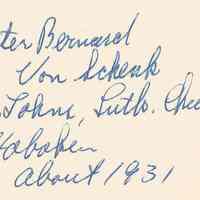 ter Bernard
Von Schenk
Johns, Luth. Chu
Hoboken
About 1931